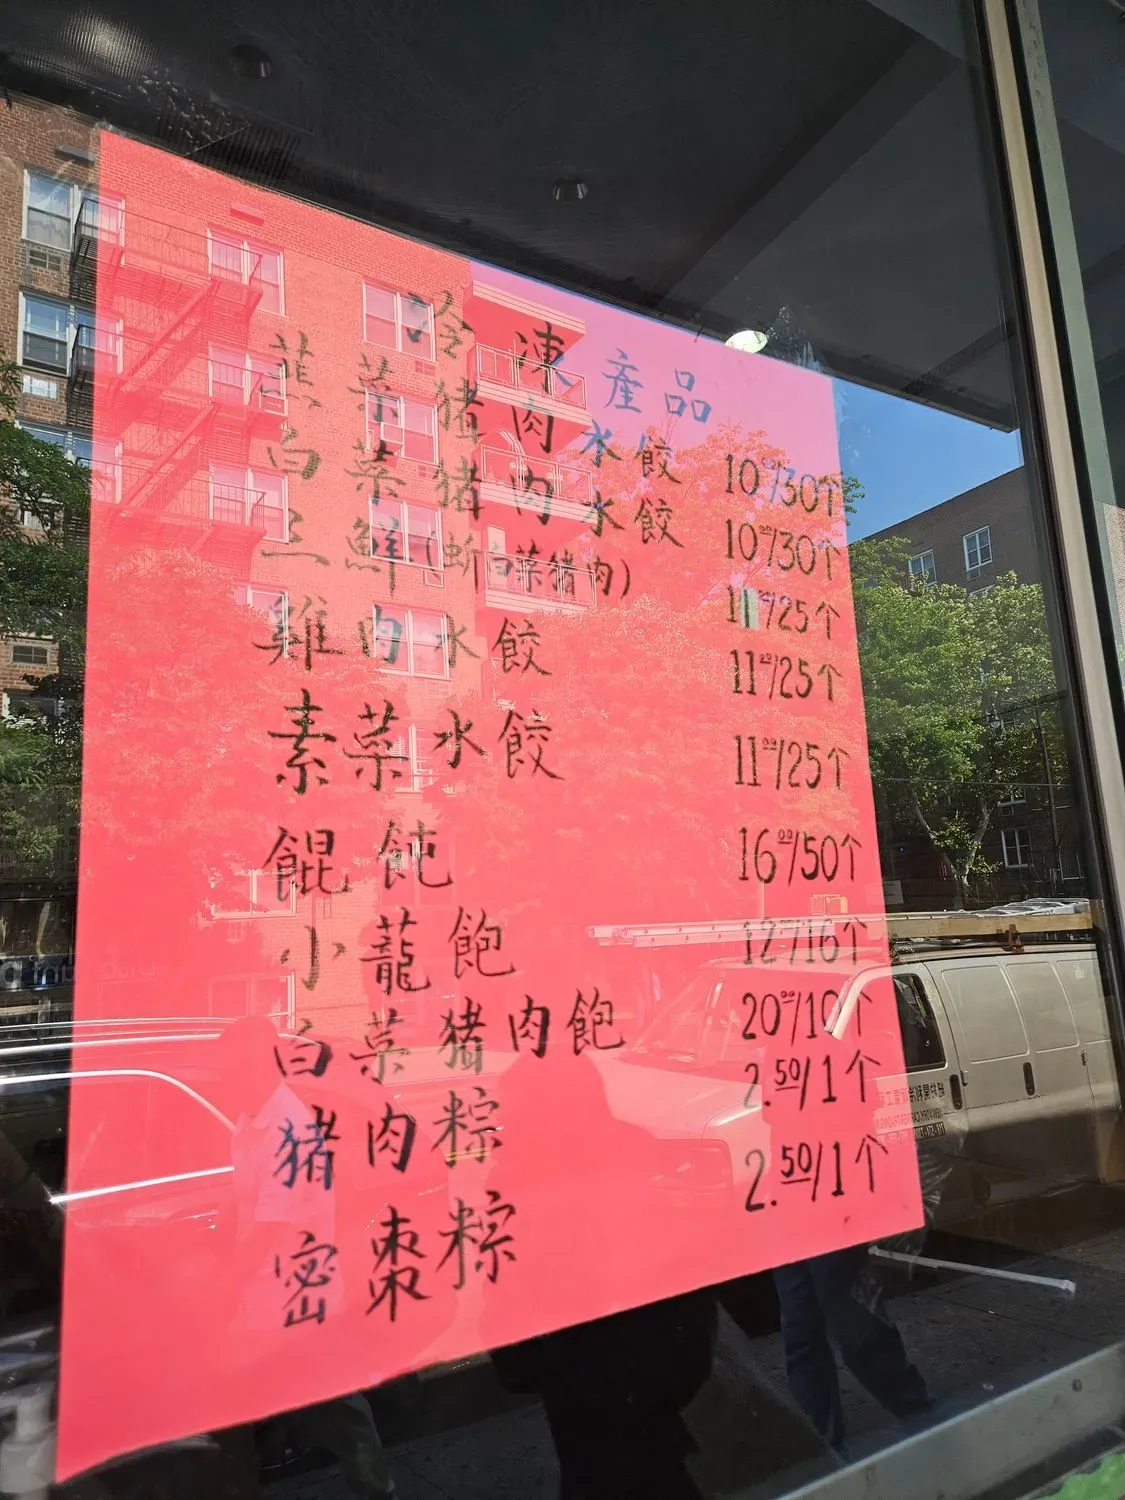 冷凍產品
韮菜猪肉水餃 10⁰⁰/30个
白菜猪肉水餃 10⁰⁰/30个
三鮮(白菜猪肉) 11⁰⁰/25个
雞肉水餃 11⁰⁰/25个
素菜水餃 11⁰⁰/25个
餛飩 16⁰⁰/50个
小蘢飽 12⁰⁰/16个
白菜猪肉飽 20⁰⁰/10个
猪肉粽 2.⁵⁰/1个
密棗粽 2.⁵⁰/1个